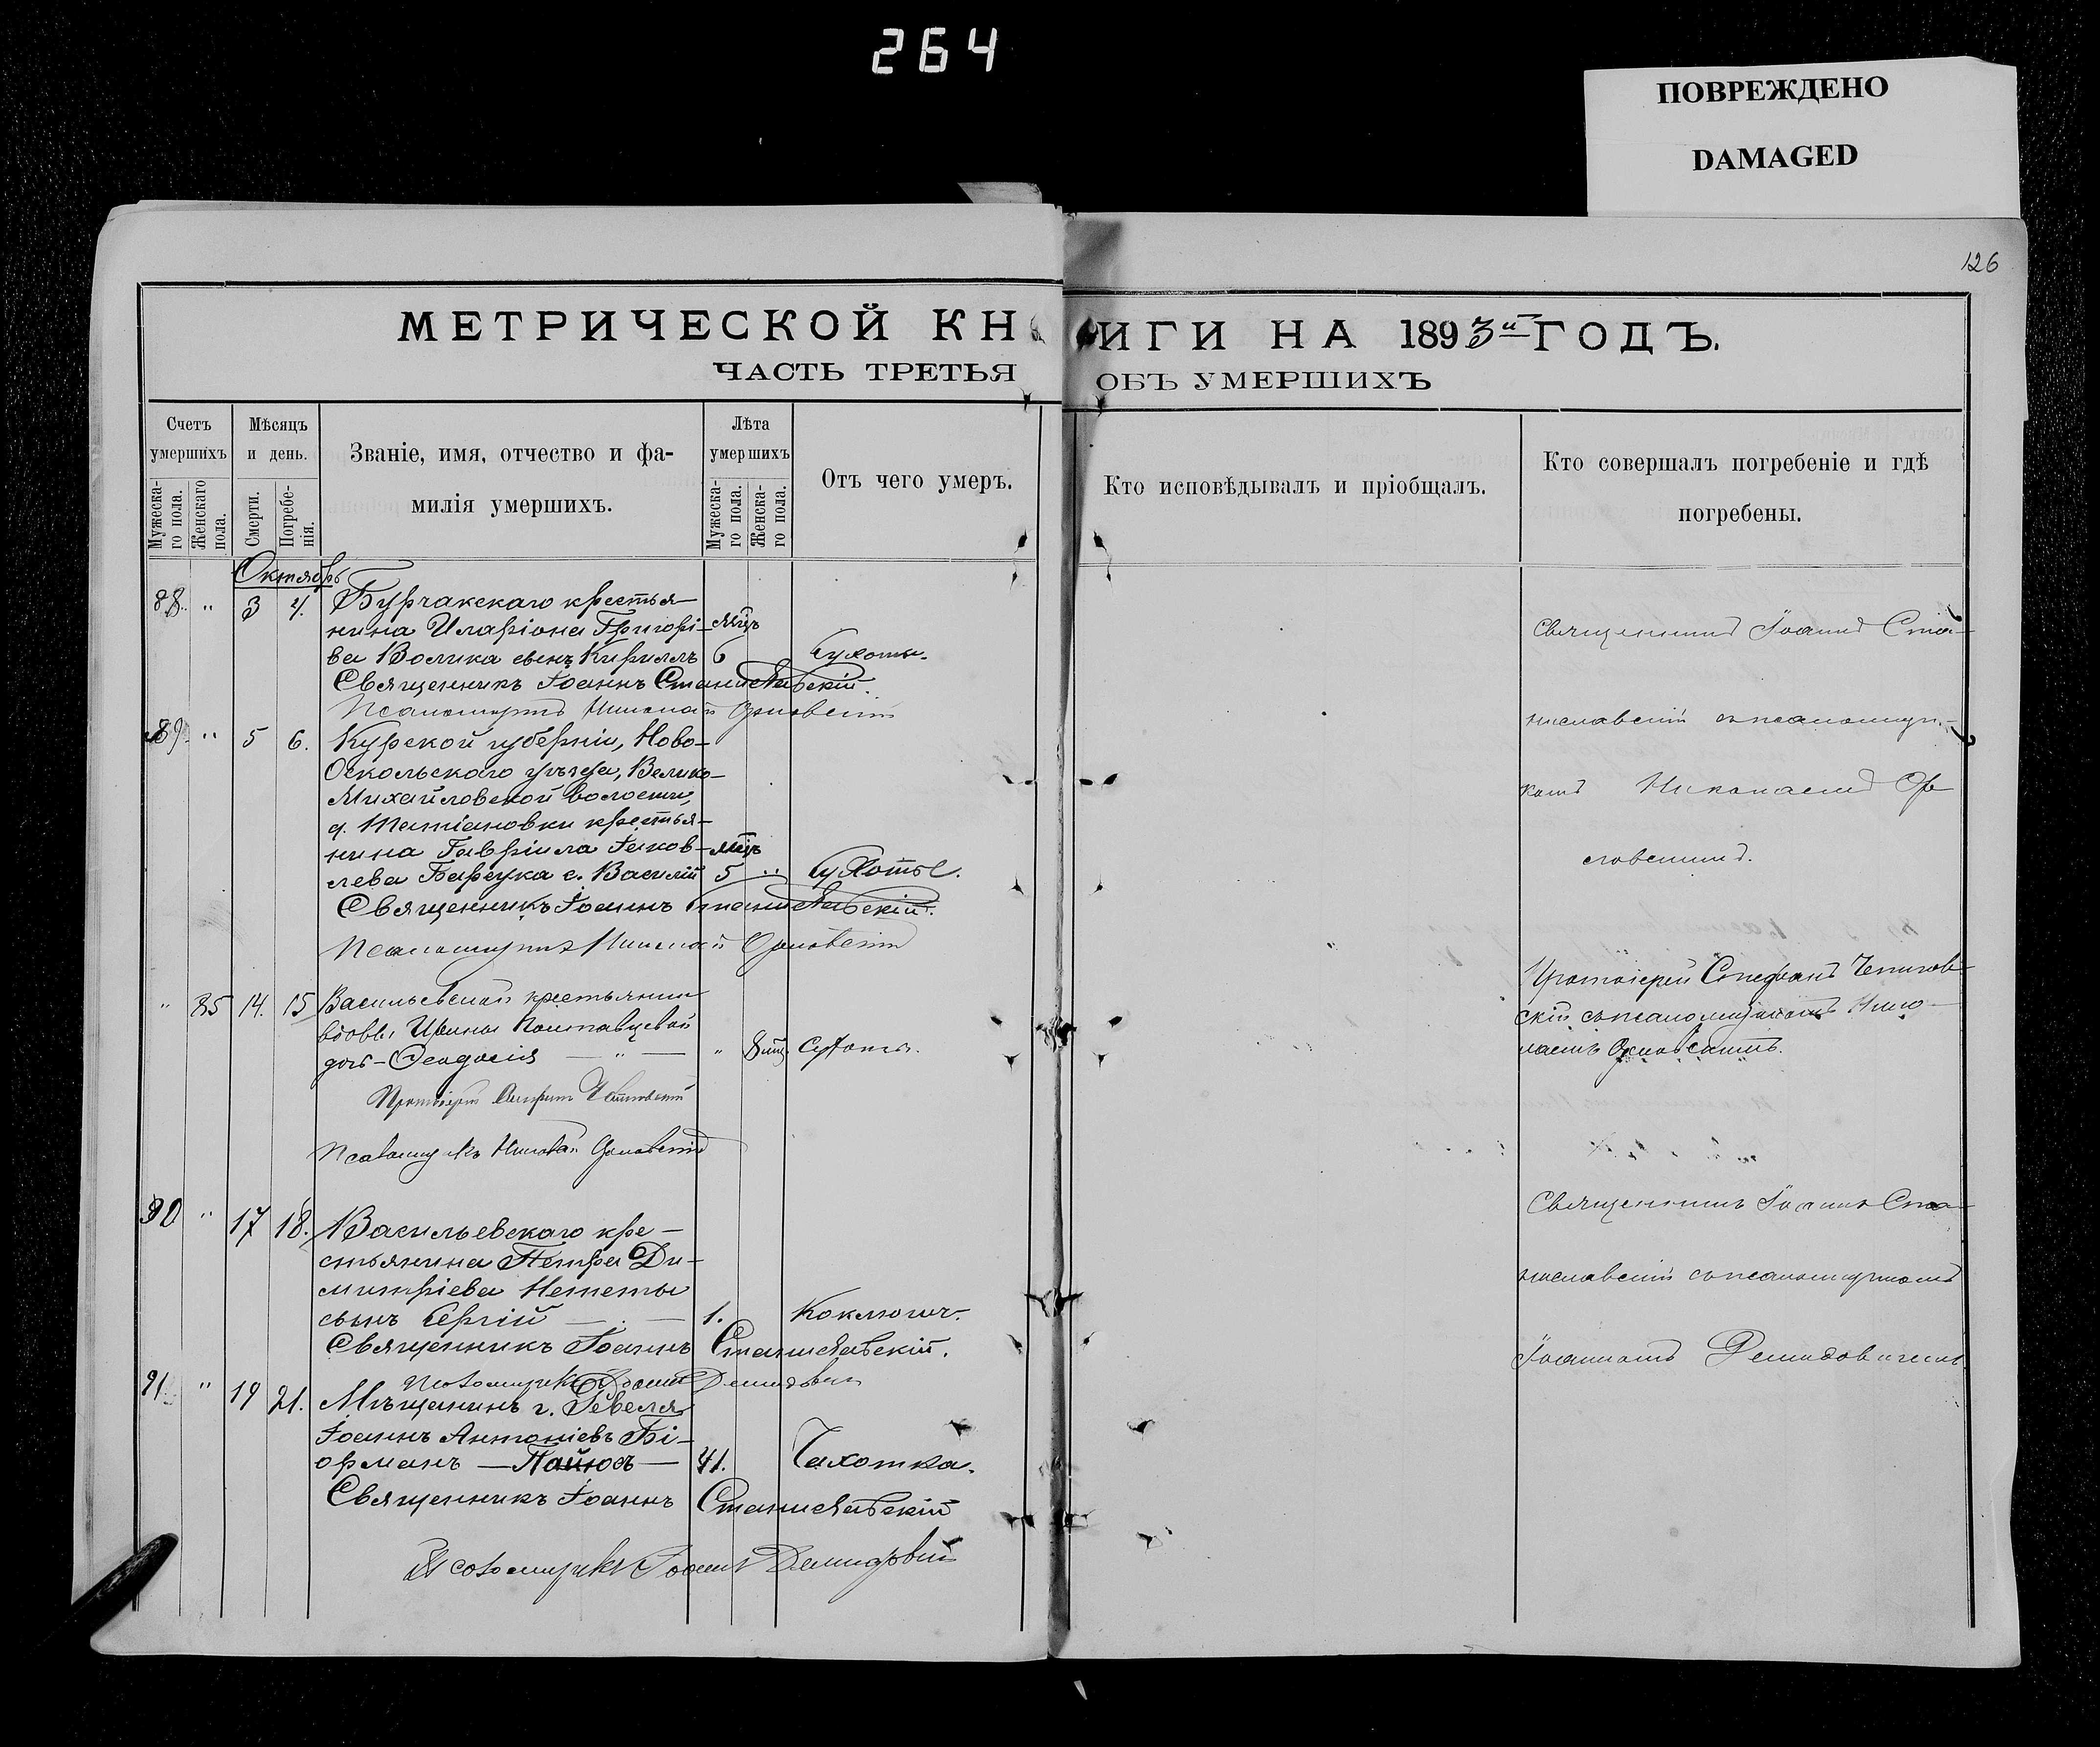 264
ПОВРЕЖДЕНО
DAMAGED
126
МЕТРИЧЕСКОЙ КНИГИ НА 1893й ГОДЪ.
ЧАСТЬ ТРЕТЬЯ ОБЪ УМЕРШИХЪ
Счетъ умершихъ
Мужеска-
го пола.
Женскаго
пола.
Мѣсяцъ и день.
Смерти.
Погребе-
нія.
Званіе, имя, отчество и фа-
милія умершихъ.
Лѣта умершихъ
Мужеска-
го пола.
Женска-
го пола.
Отъ чего умеръ.
Кто исповѣдывалъ и пріобщалъ.
Кто совершалъ погребеніе и гдѣ
погребены.
Октябрь
88 " 3 4. Бурчакскаго крестья-
нина Иларіона Григорі- мѣц
ва Волика сынъ Кириллъ 6 Сухоты.
Священникъ Іоаннъ Станиславскій.
Псаломщикъ Николай Орловскій
Священникъ Іоаннъ Ста-
ниславскій съ псаломщи-
комъ Николаемъ Ор-
ловскимъ.
89. " 5 6. Курской губерніи, Ново-
Оскольскаго уѣзда, Велико-
Михайловской волости,
д. Татіановки крестья-
нина Гавріила Іаков- мѣц
лева Барсука с. Василій 5 " Сухоты.
Священникъ Іоаннъ Станиславскій.
Псаломщикъ Николай Орловскій
" 85 14. 15 Васильевской крестьянки
вдовы Ирины Полтавцевой
дочь - Феодосія — " — " 8 мц. Сухоты.
Протоіерей
Псаломщикъ Николай Орловскій
Протоіерей Стефанъ
скій съ псаломщикомъ Нико-
лаемъ Орловскимъ.
90 " 17 18. Васильевскаго кре-
стьянина Петра Ди-
митріева Нететы
сынъ Сергій — . — 1. Коклюшъ.
Священникъ Іоаннъ Станиславскій.
Псаломщикъ Іоаннъ Демидович
Священникъ Іоаннъ Ста-
ниславскій съ псаломщикомъ
Іоанномъ Демидовичемъ
91. " 19 21. Мѣщанинъ г. Ревеля
Іоаннъ Антоніевъ Бі-
орманъ — Пайюсъ — 41. Чахотка.
Священникъ Іоаннъ Станиславскій
Псаломщикъ Іоаннъ Демидович